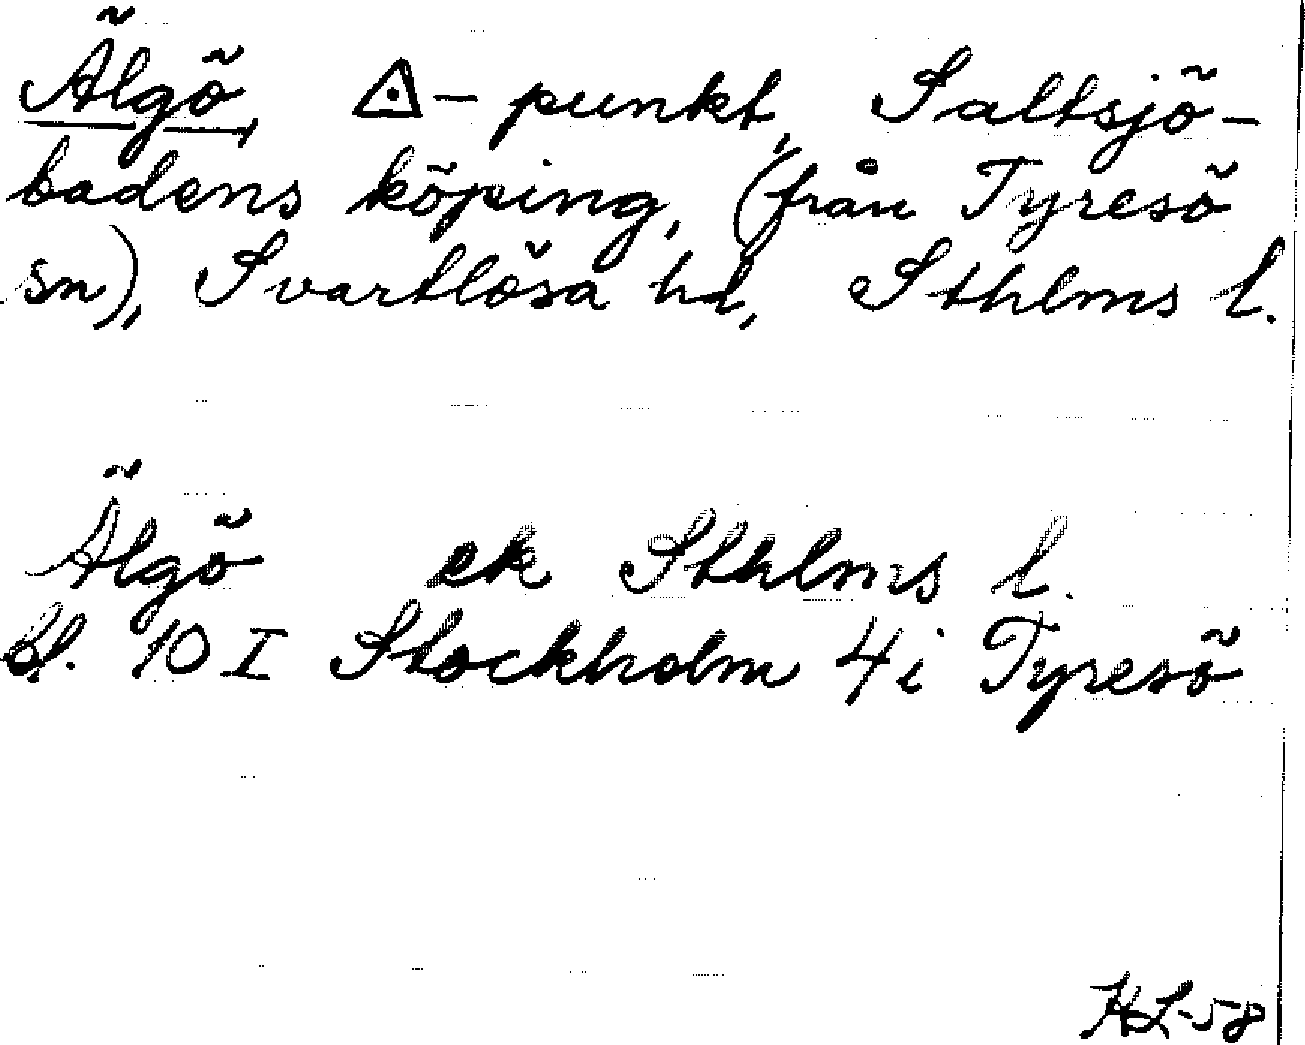 Älgö △-punkt, Saltsjö-
badens köping, (från Tyresö
sn), Svartlösa hd, Sthlms l.
Älgö ek Sthlms l.
Bl. 10 I Stockholm 4i Tyresö
HL-58